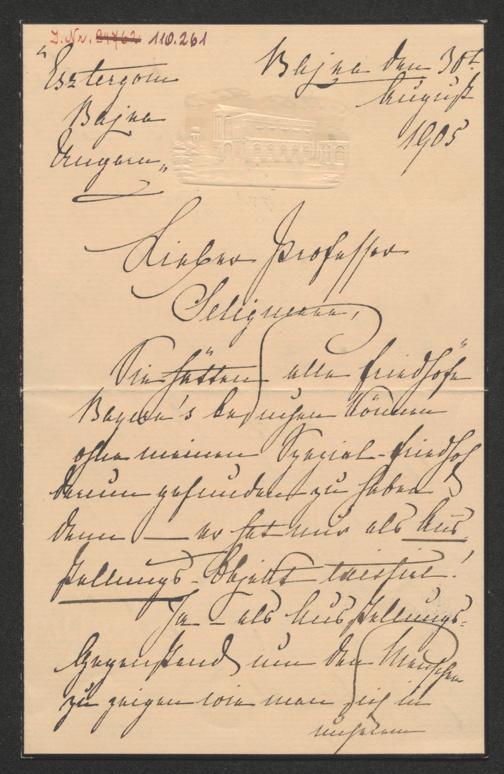 J. Nr. 24762 110.261
"Esztergom
Bajna
Ungarn"
Bajna den 30t
August
1905
Lieber Professor
Seligmann,
Sie hätten alle Friedhöfe
Bayern's besuchen können
ohne meinen Spezial-Friedhof
darum gefunden zu haben
denn — er hat nur als Aus
stellungs-Objekt existiert!
Ja — als Ausstellungs-
Gegenstand um den Menschen
zu zeigen wie man sich in
unserem